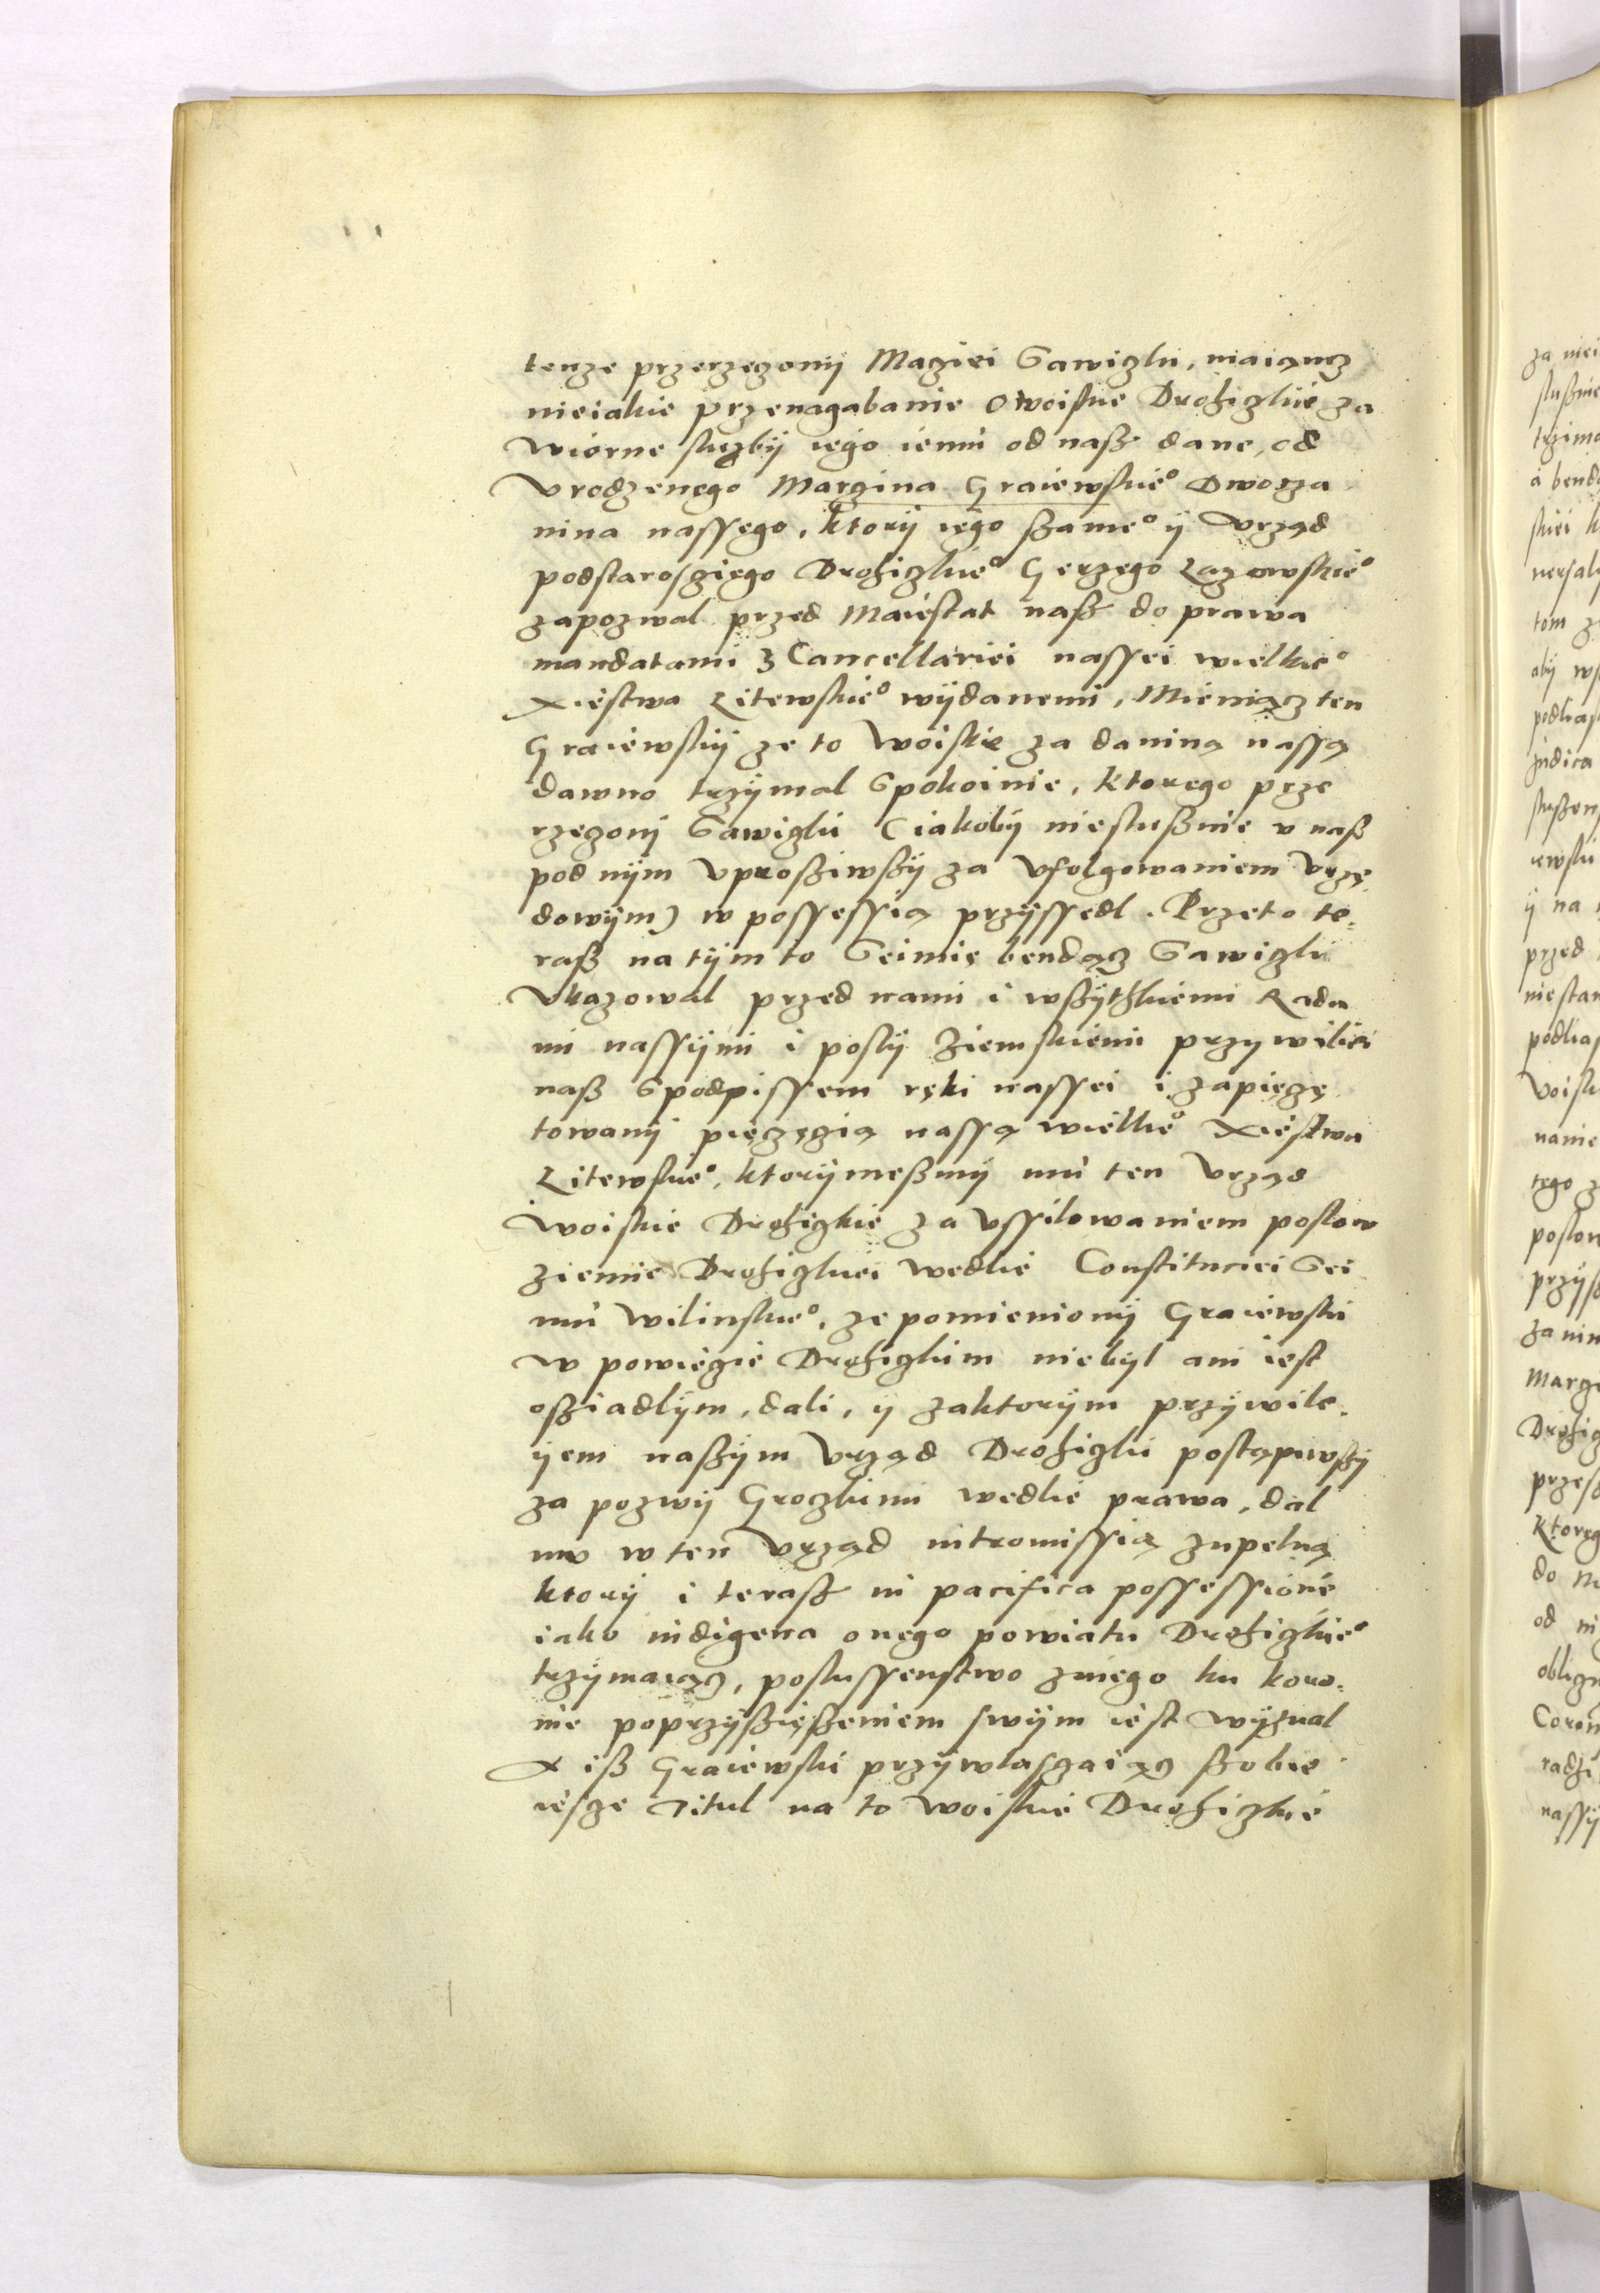 tenze przerzeczony Maciei Sawiczki, maiancz
nieiakie przenagabanie o woiskie Drohiczkie za
wiórne sluzby iego iemu od nasz dane, od
Vrodzenego Marcina Graiewskie° Dworza
nina nassego, ktory iego szame° ÿ Vrząd
podstarosciego Drohiczkie° Gerzego Lazowskie°
zapozwal przed Maiestat nasz do prawa
mandatami z Cancellariei nassei wielkie°
Xiestwa Litewskie° wydanemi, Mieniącz ten
Graiewsky ze to woiskie za daniną nassą
dawno trzymal Spokoinie, ktorego prze
rzeczony Sawiczki (iakoby niesluszmie v nasz
pod nym vprosziwszy za vfolgowaniem vrzę
dowym) w possessią przyssedl. Przeto te-
rasz na tym to Seimie bendącz Sawiczki
vkazowal przed nami i wszytzkiemi Rada
mi nassymi i posly ziemskiemi przywiliei
nasz Spodpissem ręki nassei i zapieczę
towany pieczęcią nassą wielkie° Xiestwa
Litewskie°, ktorymeszmy mu ten Vrząd
woiskie Drohiczkie za vssilowaniem poslow
ziemie Drohiczkiei wedlie Constituciei Sei
mu wilinskie°, ze pomieniony Graiewski
w powiecie Drohiczkim niebyl ani iest
osziadlym, dali, y zaktorym przywile-
yem naszym Vrząd Drohiczki postąpiwszy
za pozwy Groczkimi wedlie prawa, dal
mv w ten Vrząd intromissią zupelną
ktory i terasz in pacifica possessione
iako indigena onego powiatu Drohiczkie°
trzymaiącz, poslussenstwo zniego ku koro-
nie poprzyszięszeniem swym iest wyznal
A isz Graiewski przywlasczaiącz szobie
iescze Titul na to woiskie Drohiczkie